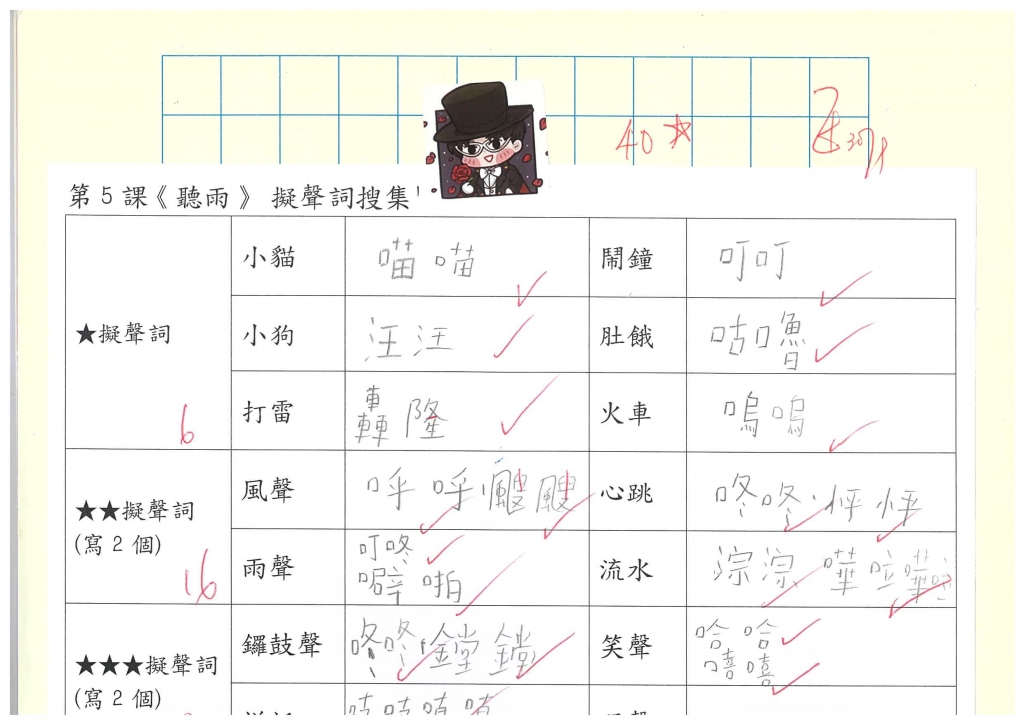 40
第5課《聽雨》擬聲詞搜集
★擬聲詞
6
小貓
喵喵
鬧鐘
叮叮
小狗
汪汪
肚餓
咕嚕
打雷
轟隆
火車
嗚嗚
★★擬聲詞
(寫2個)
16
風聲
呼呼、颼颼
心跳
咚咚、怦怦
雨聲
叮咚
噼啪
流水
淙淙 嘩啦嘩啦
★★★擬聲詞
(寫2個)
鑼鼓聲
咚咚、鏜鏜
笑聲
哈哈
嘻嘻